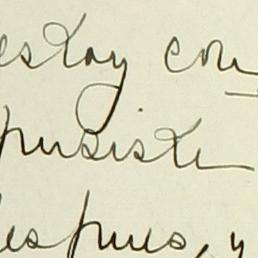 estoy con
pusiste
des pues, y